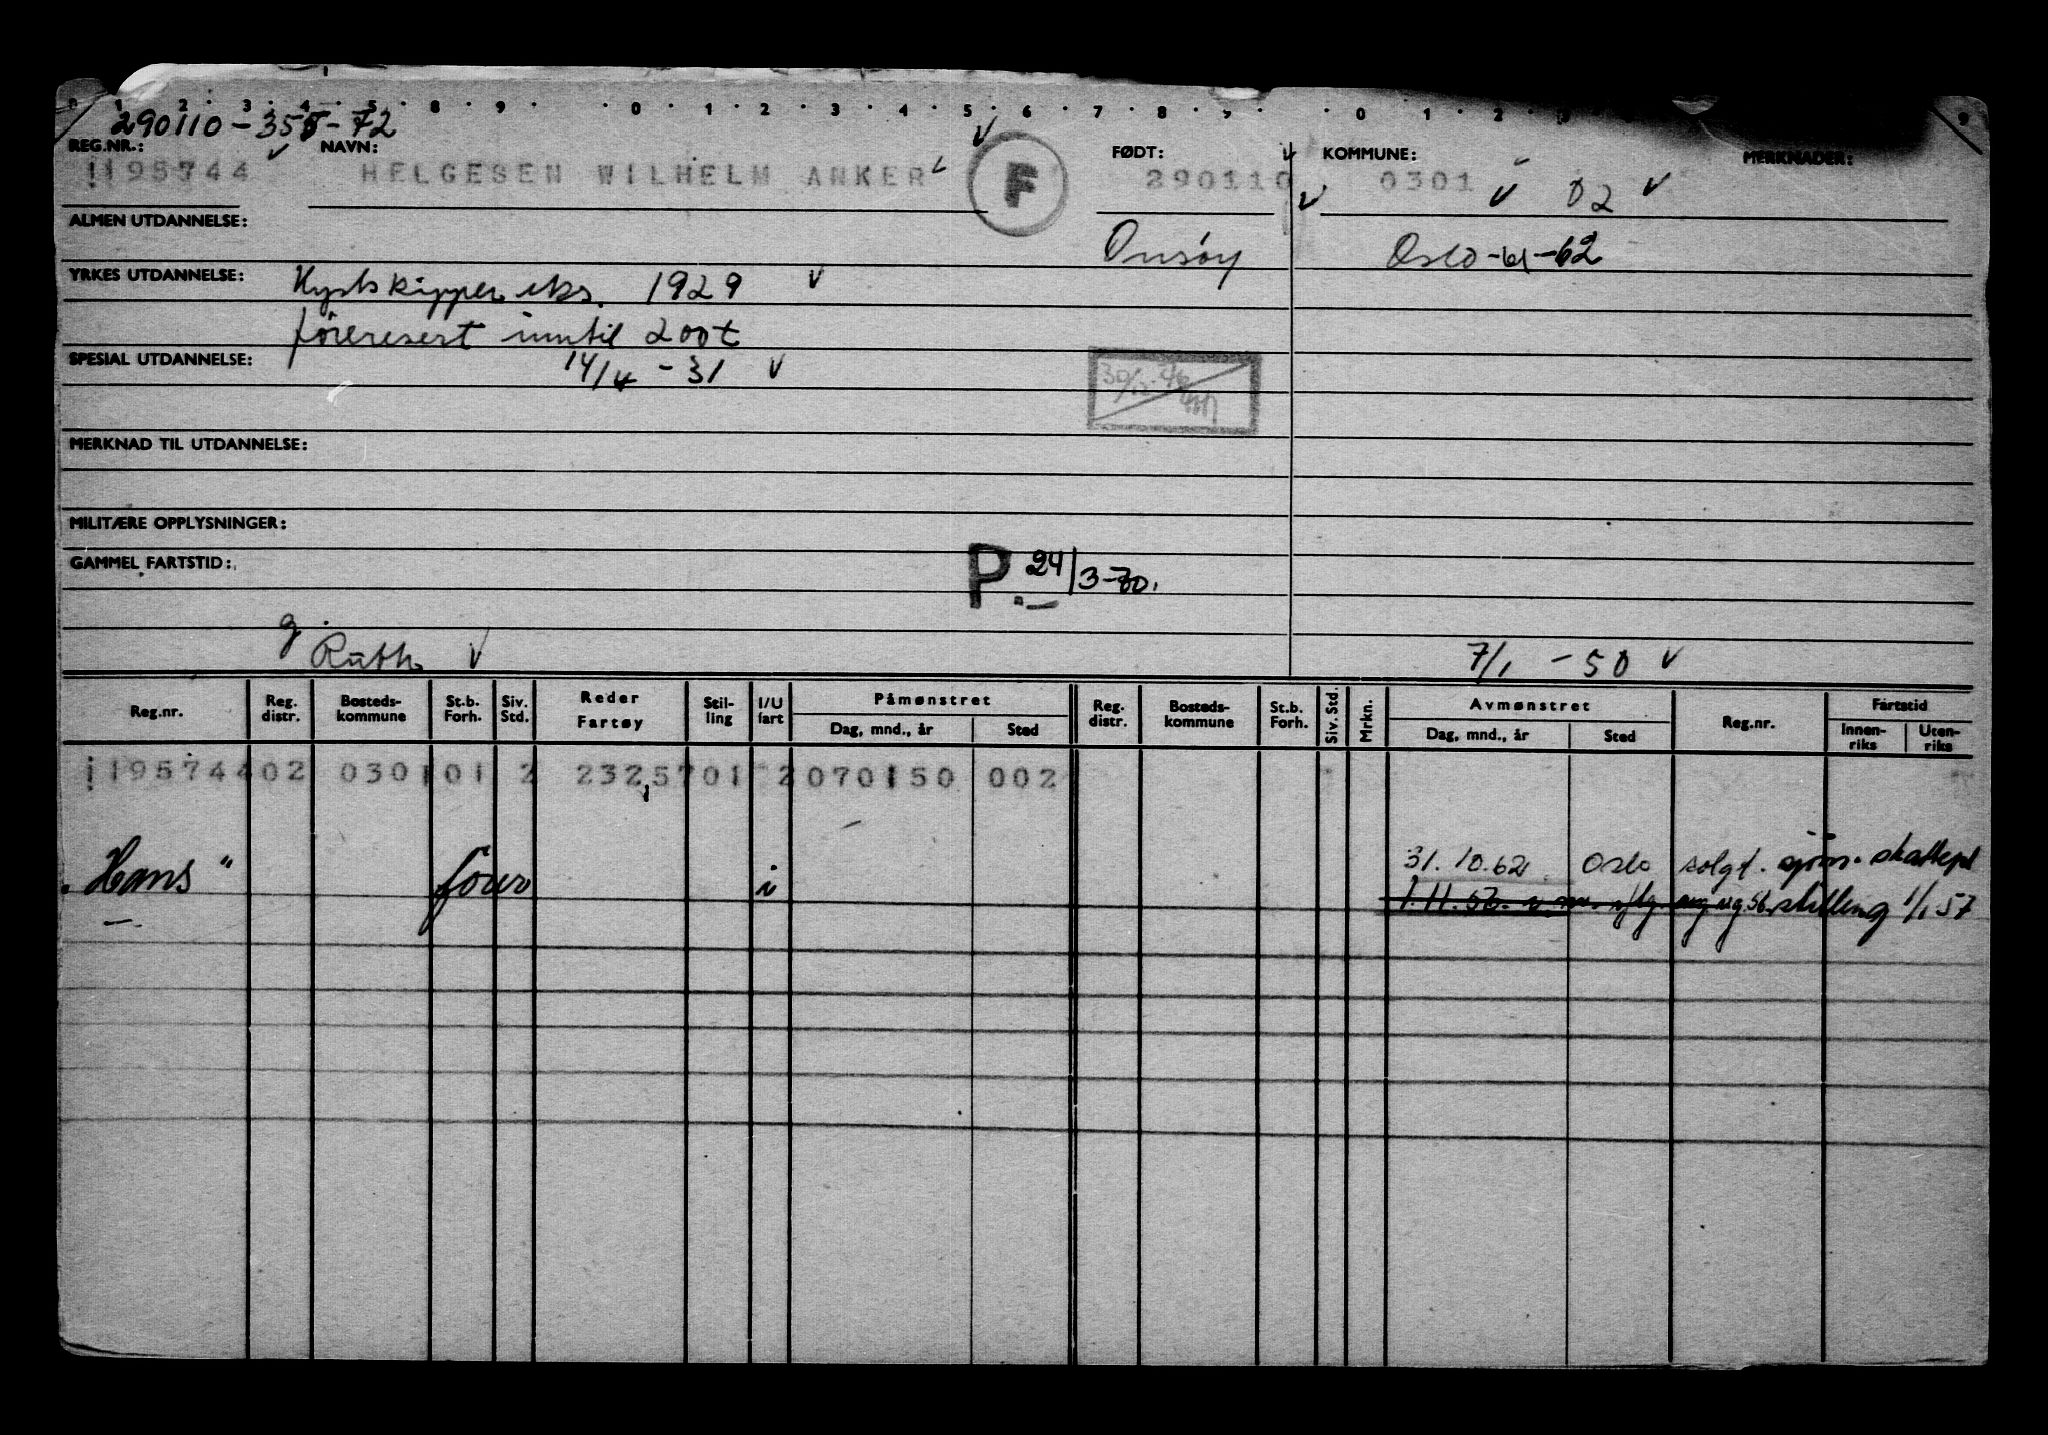 0 1 2 3 4 5 8 9 0 1 2 3 4 5 6 7 8 9 0 1 2 9
290110-355-72
REG.NR.: NAVN: FØDT: KOMMUNE: MERKNADER:
195744 HELGESEN WILHELM ANKER F 290110 0301 02
ALMEN UTDANNELSE: Onsöy Oslo-61-62
YRKES UTDANNELSE: Kystskipper eks. 1929
förersert inntil 200t
SPESIAL UTDANNELSE: 14/4 - 31
MERKNAD TIL UTDANNELSE:
MILITÆRE OPPLYSNINGER:
GAMMEL FARTSTID: P. 24/3-70.
g.
Ruth 7/1 - 50
Reg.nr. Reg. distr. Bosteds-kommune St.b. Forh. Siv. Std. Reder Fartøy Stil-ling I/U fart Påmønstret Dag, mnd., år Sted Reg. distr. Bosteds-kommune St.b. Forh. Siv. Std. Mrkn. Avmønstret Dag, mnd., år Sted Reg.nr. Fartstid Innen-riks Uten-riks
195744 02 0301 01 2 23257 01 2 070150 002
"Hans" förer i 31.10.62. Oslo solgt. sjöm. skattepl
1.11.56. stilling 1/1 57